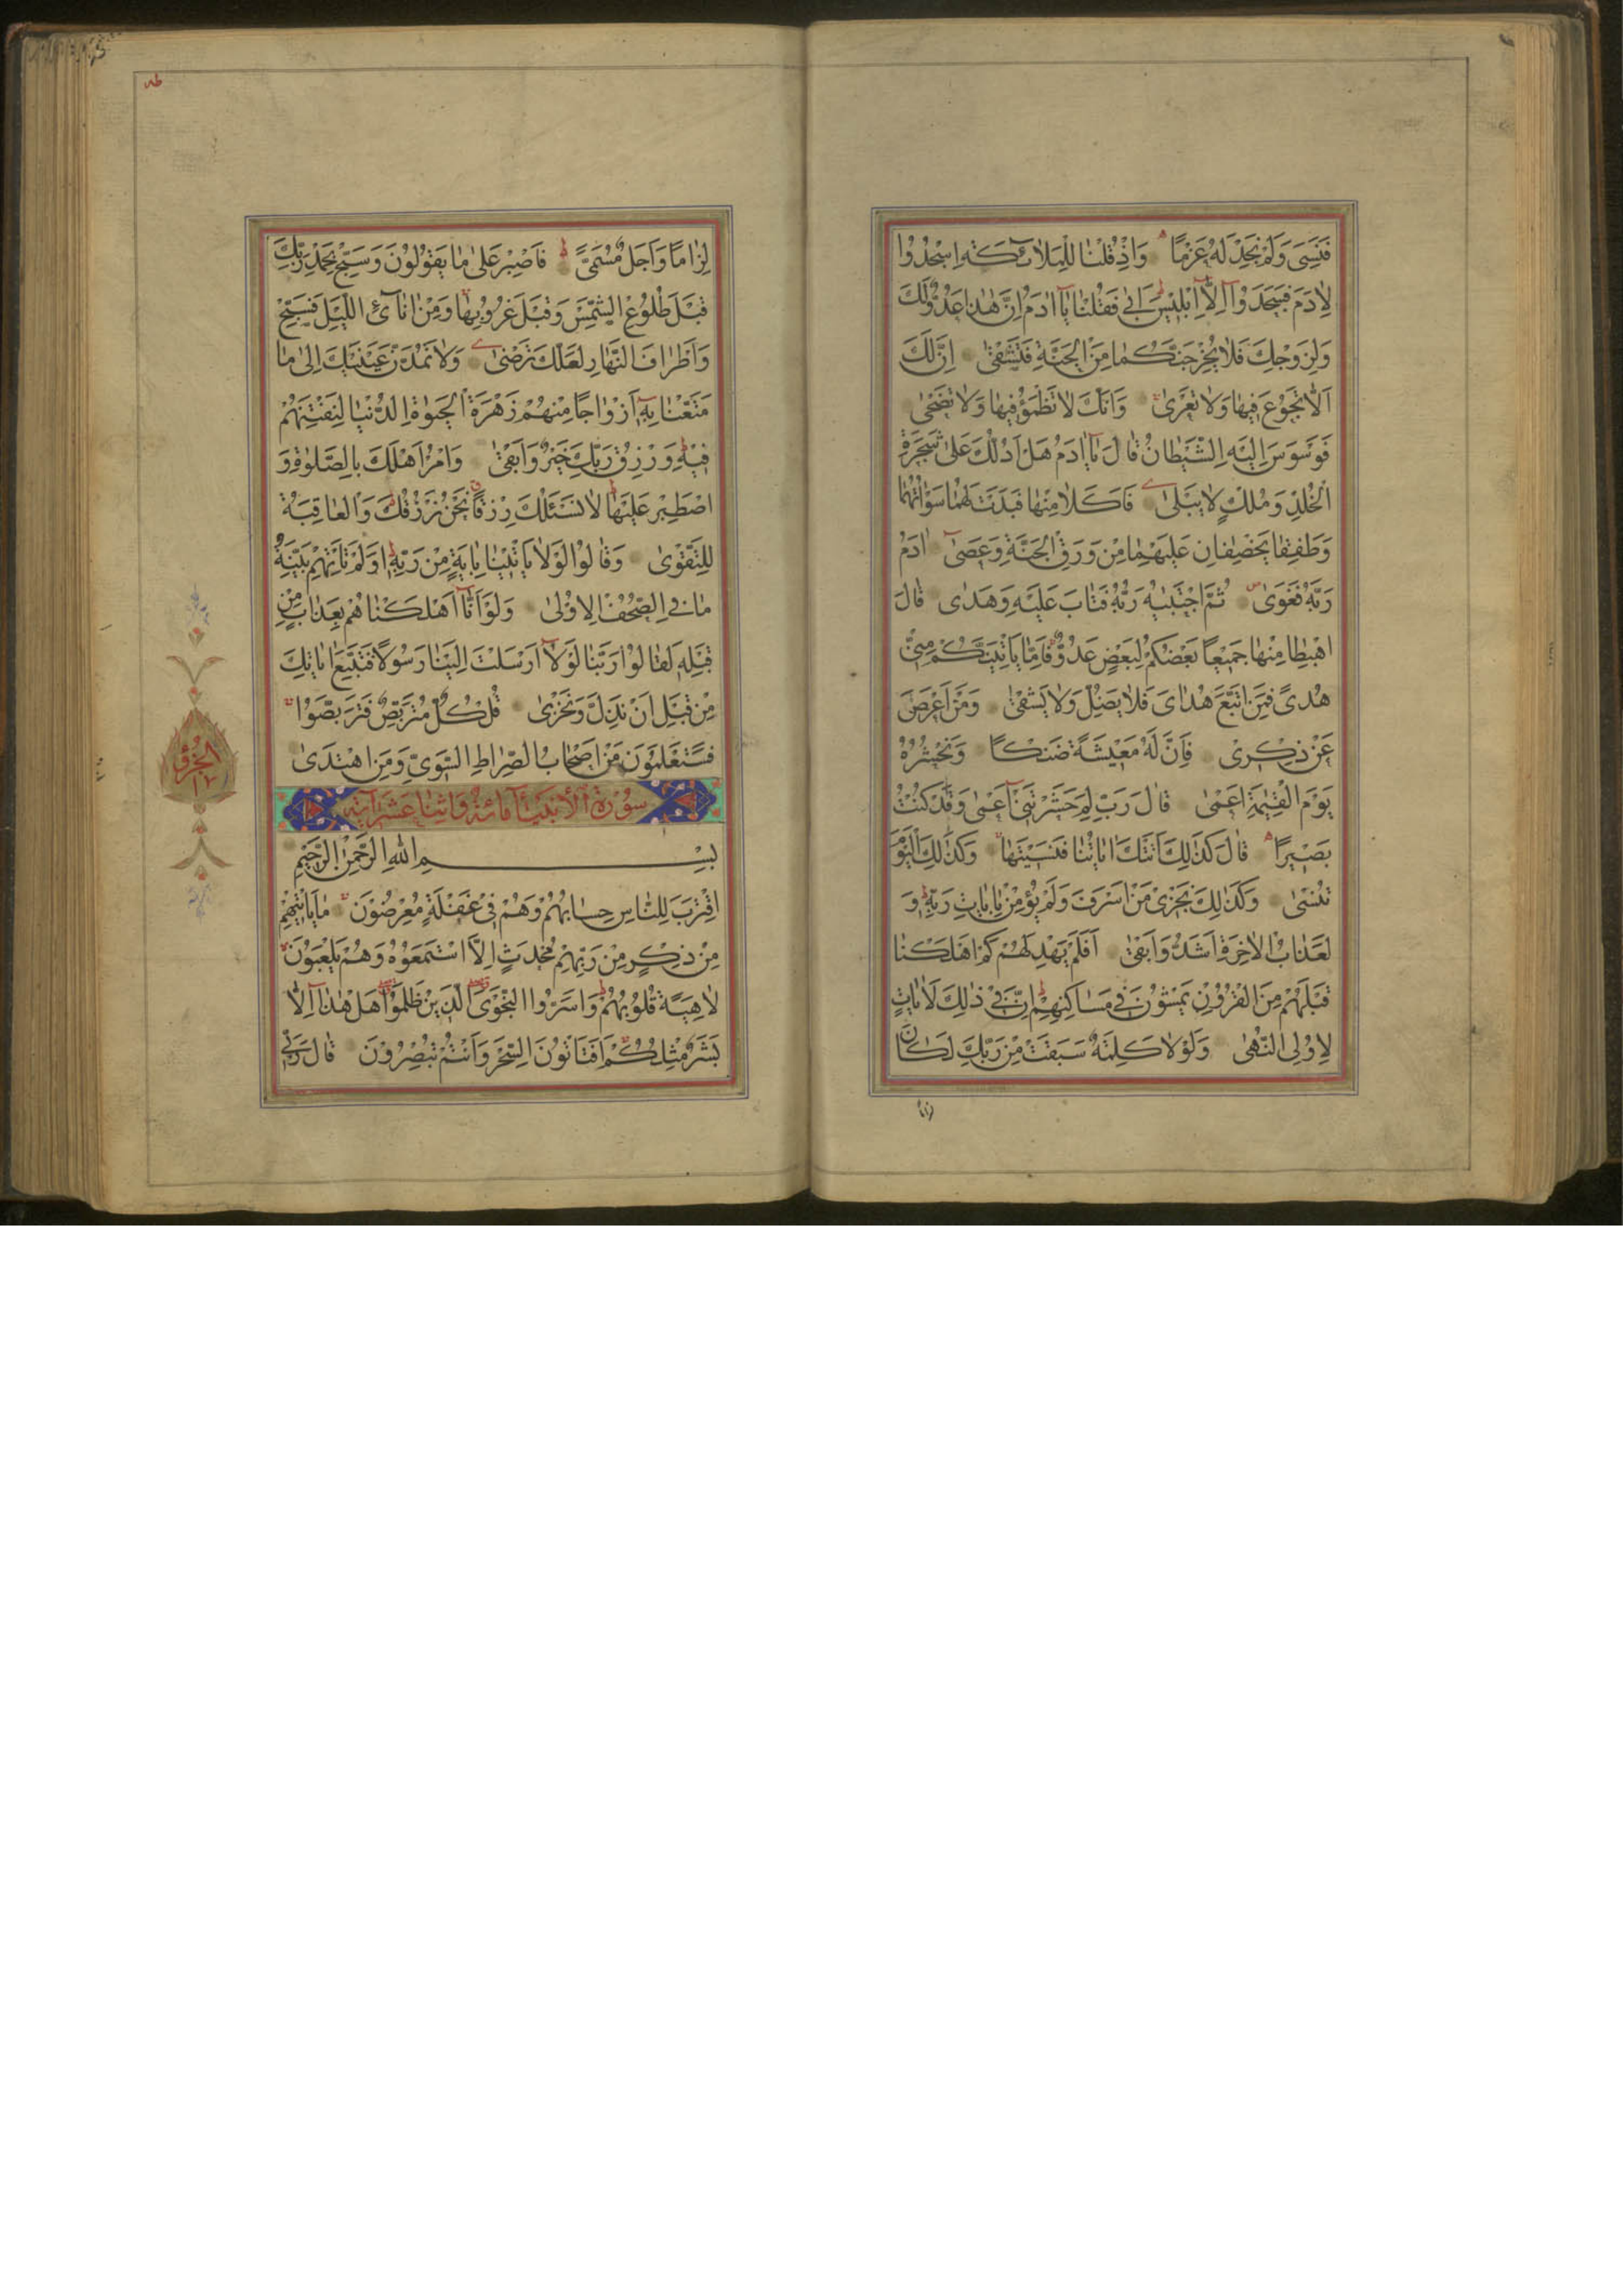 فَنَسِيَ وَلَمْ نَجِدْ لَهُ عَزْمًا وَاِذْ قُلْنَا لِلْمَلٰٓائِكَةِ اسْجُدُوا
لِاٰدَمَ فَسَجَدُوٓا اِلَّٓا اِبْلِيسَ اَبٰى فَقُلْنَا يَٓا اٰدَمُ اِنَّ هٰذَا عَدُوٌّ لَكَ
وَلِزَوْجِكَ فَلَا يُخْرِجَنَّكُمَا مِنَ الْجَنَّةِ فَتَشْقٰى اِنَّ لَكَ
اَلَّا تَجُوعَ فِيهَا وَلَا تَعْرٰى وَاَنَّكَ لَا تَظْمَؤُ فِيهَا وَلَا تَضْحٰى
فَوَسْوَسَ اِلَيْهِ الشَّيْطَانُ قَالَ يَٓا اٰدَمُ هَلْ اَدُلُّكَ عَلٰى شَجَرَةِ
الْخُلْدِ وَمُلْكٍ لَا يَبْلٰى فَاَكَلَا مِنْهَا فَبَدَتْ لَهُمَا سَوْاٰتُهُمَا
وَطَفِقَا يَخْصِفَانِ عَلَيْهِمَا مِنْ وَرَقِ الْجَنَّةِ وَعَصٰٓى اٰدَمُ
رَبَّهُ فَغَوٰى ثُمَّ اجْتَبٰيهُ رَبُّهُ فَتَابَ عَلَيْهِ وَهَدٰى قَالَ
اهْبِطَا مِنْهَا جَمِيعًا بَعْضُكُمْ لِبَعْضٍ عَدُوٌّ فَاِمَّا يَاْتِيَنَّكُمْ مِنِّي
هُدًى فَمَنِ اتَّبَعَ هُدَايَ فَلَا يَضِلُّ وَلَا يَشْقٰى وَمَنْ اَعْرَضَ
عَنْ ذِكْرِي فَاِنَّ لَهُ مَعِيشَةً ضَنْكًا وَنَحْشُرُهُ
يَوْمَ الْقِيٰمَةِ اَعْمٰى قَالَ رَبِّ لِمَ حَشَرْتَنِٓي اَعْمٰى وَقَدْ كُنْتُ
بَصِيرًا قَالَ كَذٰلِكَ اَتَتْكَ اٰيَاتُنَا فَنَسِيتَهَا وَكَذٰلِكَ الْيَوْمَ
تُنْسٰى وَكَذٰلِكَ نَجْزِي مَنْ اَسْرَفَ وَلَمْ يُؤْمِنْ بِاٰيَاتِ رَبِّهِ وَ
لَعَذَابُ الْاٰخِرَةِ اَشَدُّ وَاَبْقٰى اَفَلَمْ يَهْدِ لَهُمْ كَمْ اَهْلَكْنَا
قَبْلَهُمْ مِنَ الْقُرُونِ يَمْشُونَ فِي مَسَاكِنِهِمْ اِنَّ فِي ذٰلِكَ لَاٰيَاتٍ
لِاُولِي النُّهٰى وَلَوْلَا كَلِمَةٌ سَبَقَتْ مِنْ رَبِّكَ لَكَانَ
لزاما
طه
لِزَامًا وَاَجَلٌ مُسَمًّى فَاصْبِرْ عَلٰى مَا يَقُولُونَ وَسَبِّحْ بِحَمْدِ رَبِّكَ
قَبْلَ طُلُوعِ الشَّمْسِ وَقَبْلَ غُرُوبِهَا وَمِنْ اٰنَٓائِ الَّيْلِ فَسَبِّحْ
وَاَطْرَافَ النَّهَارِ لَعَلَّكَ تَرْضٰى وَلَا تَمُدَّنَّ عَيْنَيْكَ اِلٰى مَا
مَتَّعْنَا بِهِ اَزْوَاجًا مِنْهُمْ زَهْرَةَ الْحَيٰوةِ الدُّنْيَا لِنَفْتِنَهُمْ
فِيهِ وَرِزْقُ رَبِّكَ خَيْرٌ وَاَبْقٰى وَاْمُرْ اَهْلَكَ بِالصَّلٰوةِ وَ
اصْطَبِرْ عَلَيْهَا لَا نَسْـَٔلُكَ رِزْقًا نَحْنُ نَرْزُقُكَ وَالْعَاقِبَةُ
لِلتَّقْوٰى وَقَالُوا لَوْلَا يَاْتِينَا بِاٰيَةٍ مِنْ رَبِّهِ اَوَلَمْ تَاْتِهِمْ بَيِّنَةُ
مَا فِي الصُّحُفِ الْاُولٰى وَلَوْ اَنَّٓا اَهْلَكْنَاهُمْ بِعَذَابٍ مِنْ
قَبْلِهِ لَقَالُوا رَبَّنَا لَوْلَٓا اَرْسَلْتَ اِلَيْنَا رَسُولًا فَنَتَّبِعَ اٰيَاتِكَ
مِنْ قَبْلِ اَنْ نَذِلَّ وَنَخْزٰى قُلْ كُلٌّ مُتَرَبِّصٌ فَتَرَبَّصُوا
فَسَتَعْلَمُونَ مَنْ اَصْحَابُ الصِّرَاطِ السَّوِيِّ وَمَنِ اهْتَدٰى
سُورَةُ الْاَنْبِيَٓاءِ مِائَةٌ وَاثْنَا عَشَرَ اٰيَة
بِسْمِ اللّٰهِ الرَّحْمٰنِ الرَّحِيمِ
اِقْتَرَبَ لِلنَّاسِ حِسَابُهُمْ وَهُمْ فِي غَفْلَةٍ مُعْرِضُونَ مَا يَاْتِيهِمْ
مِنْ ذِكْرٍ مِنْ رَبِّهِمْ مُحْدَثٍ اِلَّا اسْتَمَعُوهُ وَهُمْ يَلْعَبُونَ
لَاهِيَةً قُلُوبُهُمْ وَاَسَرُّوا النَّجْوَى الَّذِينَ ظَلَمُوا هَلْ هٰذَٓا اِلَّا
بَشَرٌ مِثْلُكُمْ اَفَتَاْتُونَ السِّحْرَ وَاَنْتُمْ تُبْصِرُونَ قَالَ رَبِّي
الجزؤ
١٧